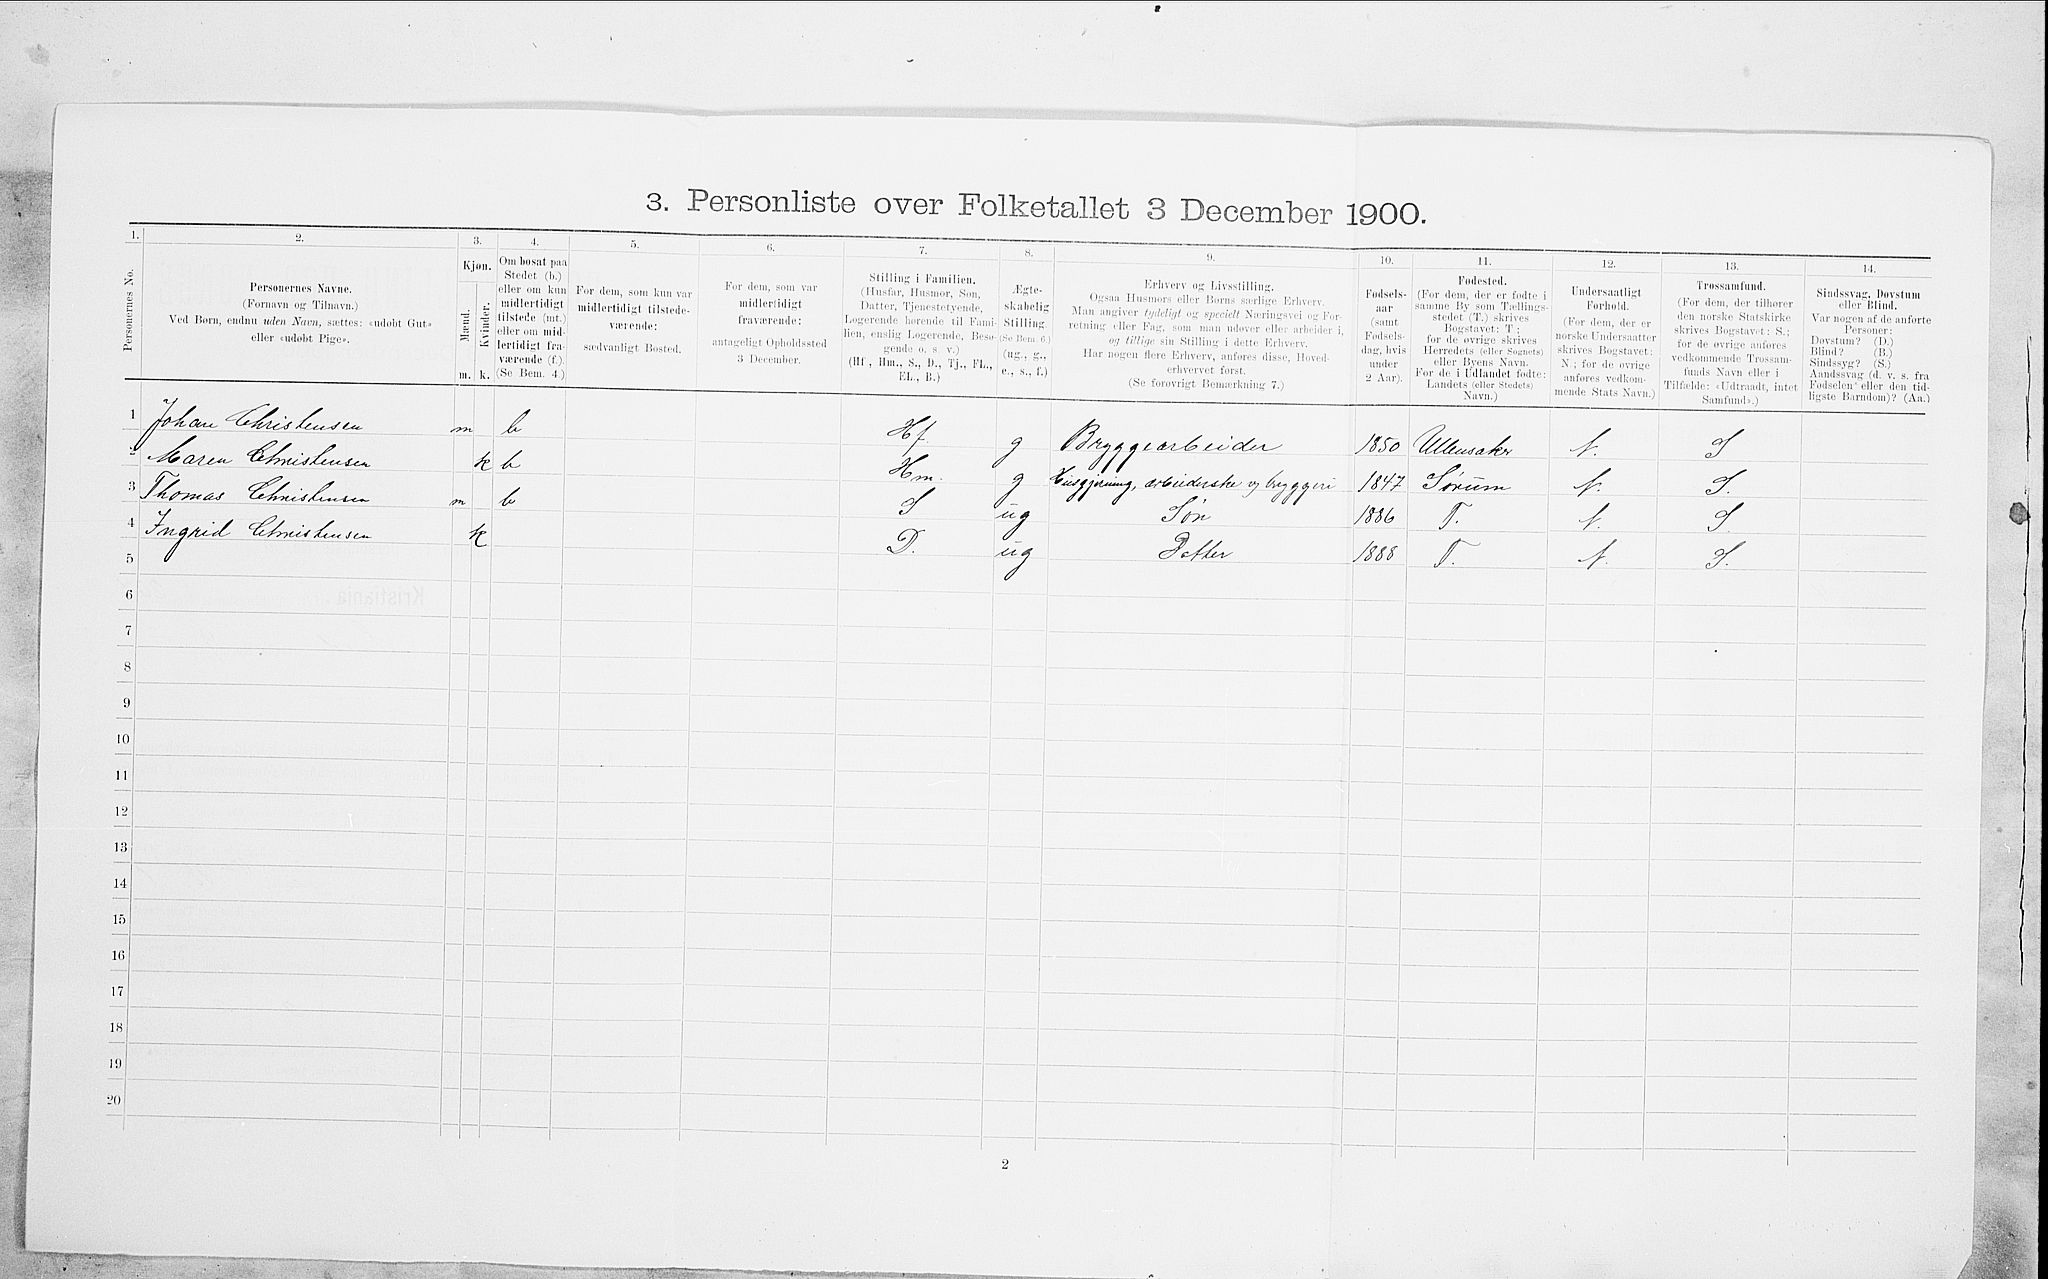 3. Personliste over Folketallet 3 December 1900.
1. 2. 3. 4. 5. 6. 7. 8. 9. 10. 11. 12. 13. 14.
Personernes No.
Personernes Navne.
(Fornavn og Tilnavn.)
Ved Børn, endnu uden Navn, sættes: «udøbt Gut»
eller «udøbt Pige».
Kjøn.
Mænd.
Kvinder.
m. k.
Om bosat paa
Stedet (b.)
eller om kun
midlertidigt
tilstede (mt.)
eller om mid-
lertidigt fra-
værende (f.).
(Se Bem. 4.)
For dem, som kun var
midlertidigt tilstede-
værende:
sædvanligt Bosted.
For dem, som var
midlertidigt
fraværende:
antageligt Opholdssted
3 December.
Stilling i Familien.
(Husfar, Husmor, Søn,
Datter, Tjenestetyende,
Logerende hørende til Fami-
lien, enslig Logerende, Besø-
gende o. s. v.)
(Hf, Hm., S., D., Tj., FL.,
EL., B.)
Ægte-
skabelig
Stilling.
(Se Bem. 6.)
(ug., g.,
e., s., f.)
Erhverv og Livsstilling.
Ogsaa Husmors eller Børns særlige Erhverv.
Man angiver tydeligt og specielt Næringsvei og For-
retning eller Fag, som man udøver eller arbeider i,
og tillige sin Stilling i dette Erhverv.
Har nogen flere Erhverv, anføres disse, Hoved-
erhvervet først.
(Se forøvrigt Bemærkning 7.)
Fødsels-
aar
(samt
Fødsels-
dag, hvis
under
2 Aar).
Fødested.
(For dem, der er fødte i
samme By som Tællings-
stedet (T.) skrives
Bogstavet: T;
for de øvrige skrives
Herredets (eller Sognets)
eller Byens Navn.
For de i Udlandet fødte:
Landets (eller Stedets)
Navn.)
Undersaatligt
Forhold.
(For dem, der er
norske Undersaatter
skrives Bogstavet:
N; for de øvrige
anføres vedkom-
mende Stats Navn.)
Trossamfund.
(For dem, der tilhører
den norske Statskirke
skrives Bogstavet: S.;
for de øvrige anføres
vedkommende Trossam-
funds Navn eller i
Tilfælde: «Udtraadt, intet
Samfund».)
Sindssvag, Døvstum
eller Blind.
Var nogen af de anførte
Personer:
Døvstum? (D.)
Blind? (B.)
Sindssyg? (S.)
Aandssvag (d. v. s. fra
Fødselen eller den tid-
ligste Barndom)? (Aa.)
1 Johan Christensen m b Hf. g Bryggearbeider 1850 Ullensaker N. S
2 Maren Christensen k b Hm. g Husgjerning, arbeiderske og bryggeri 1847 Sørum N. S.
3 Thomas Christensen m b S ug Søn 1886 T. N. S
4 Ingrid Christensen k D. ug Datter 1888 T. N. S.
5
6
7
8
9
10
11
12
13
14
15
16
17
18
19
20
2